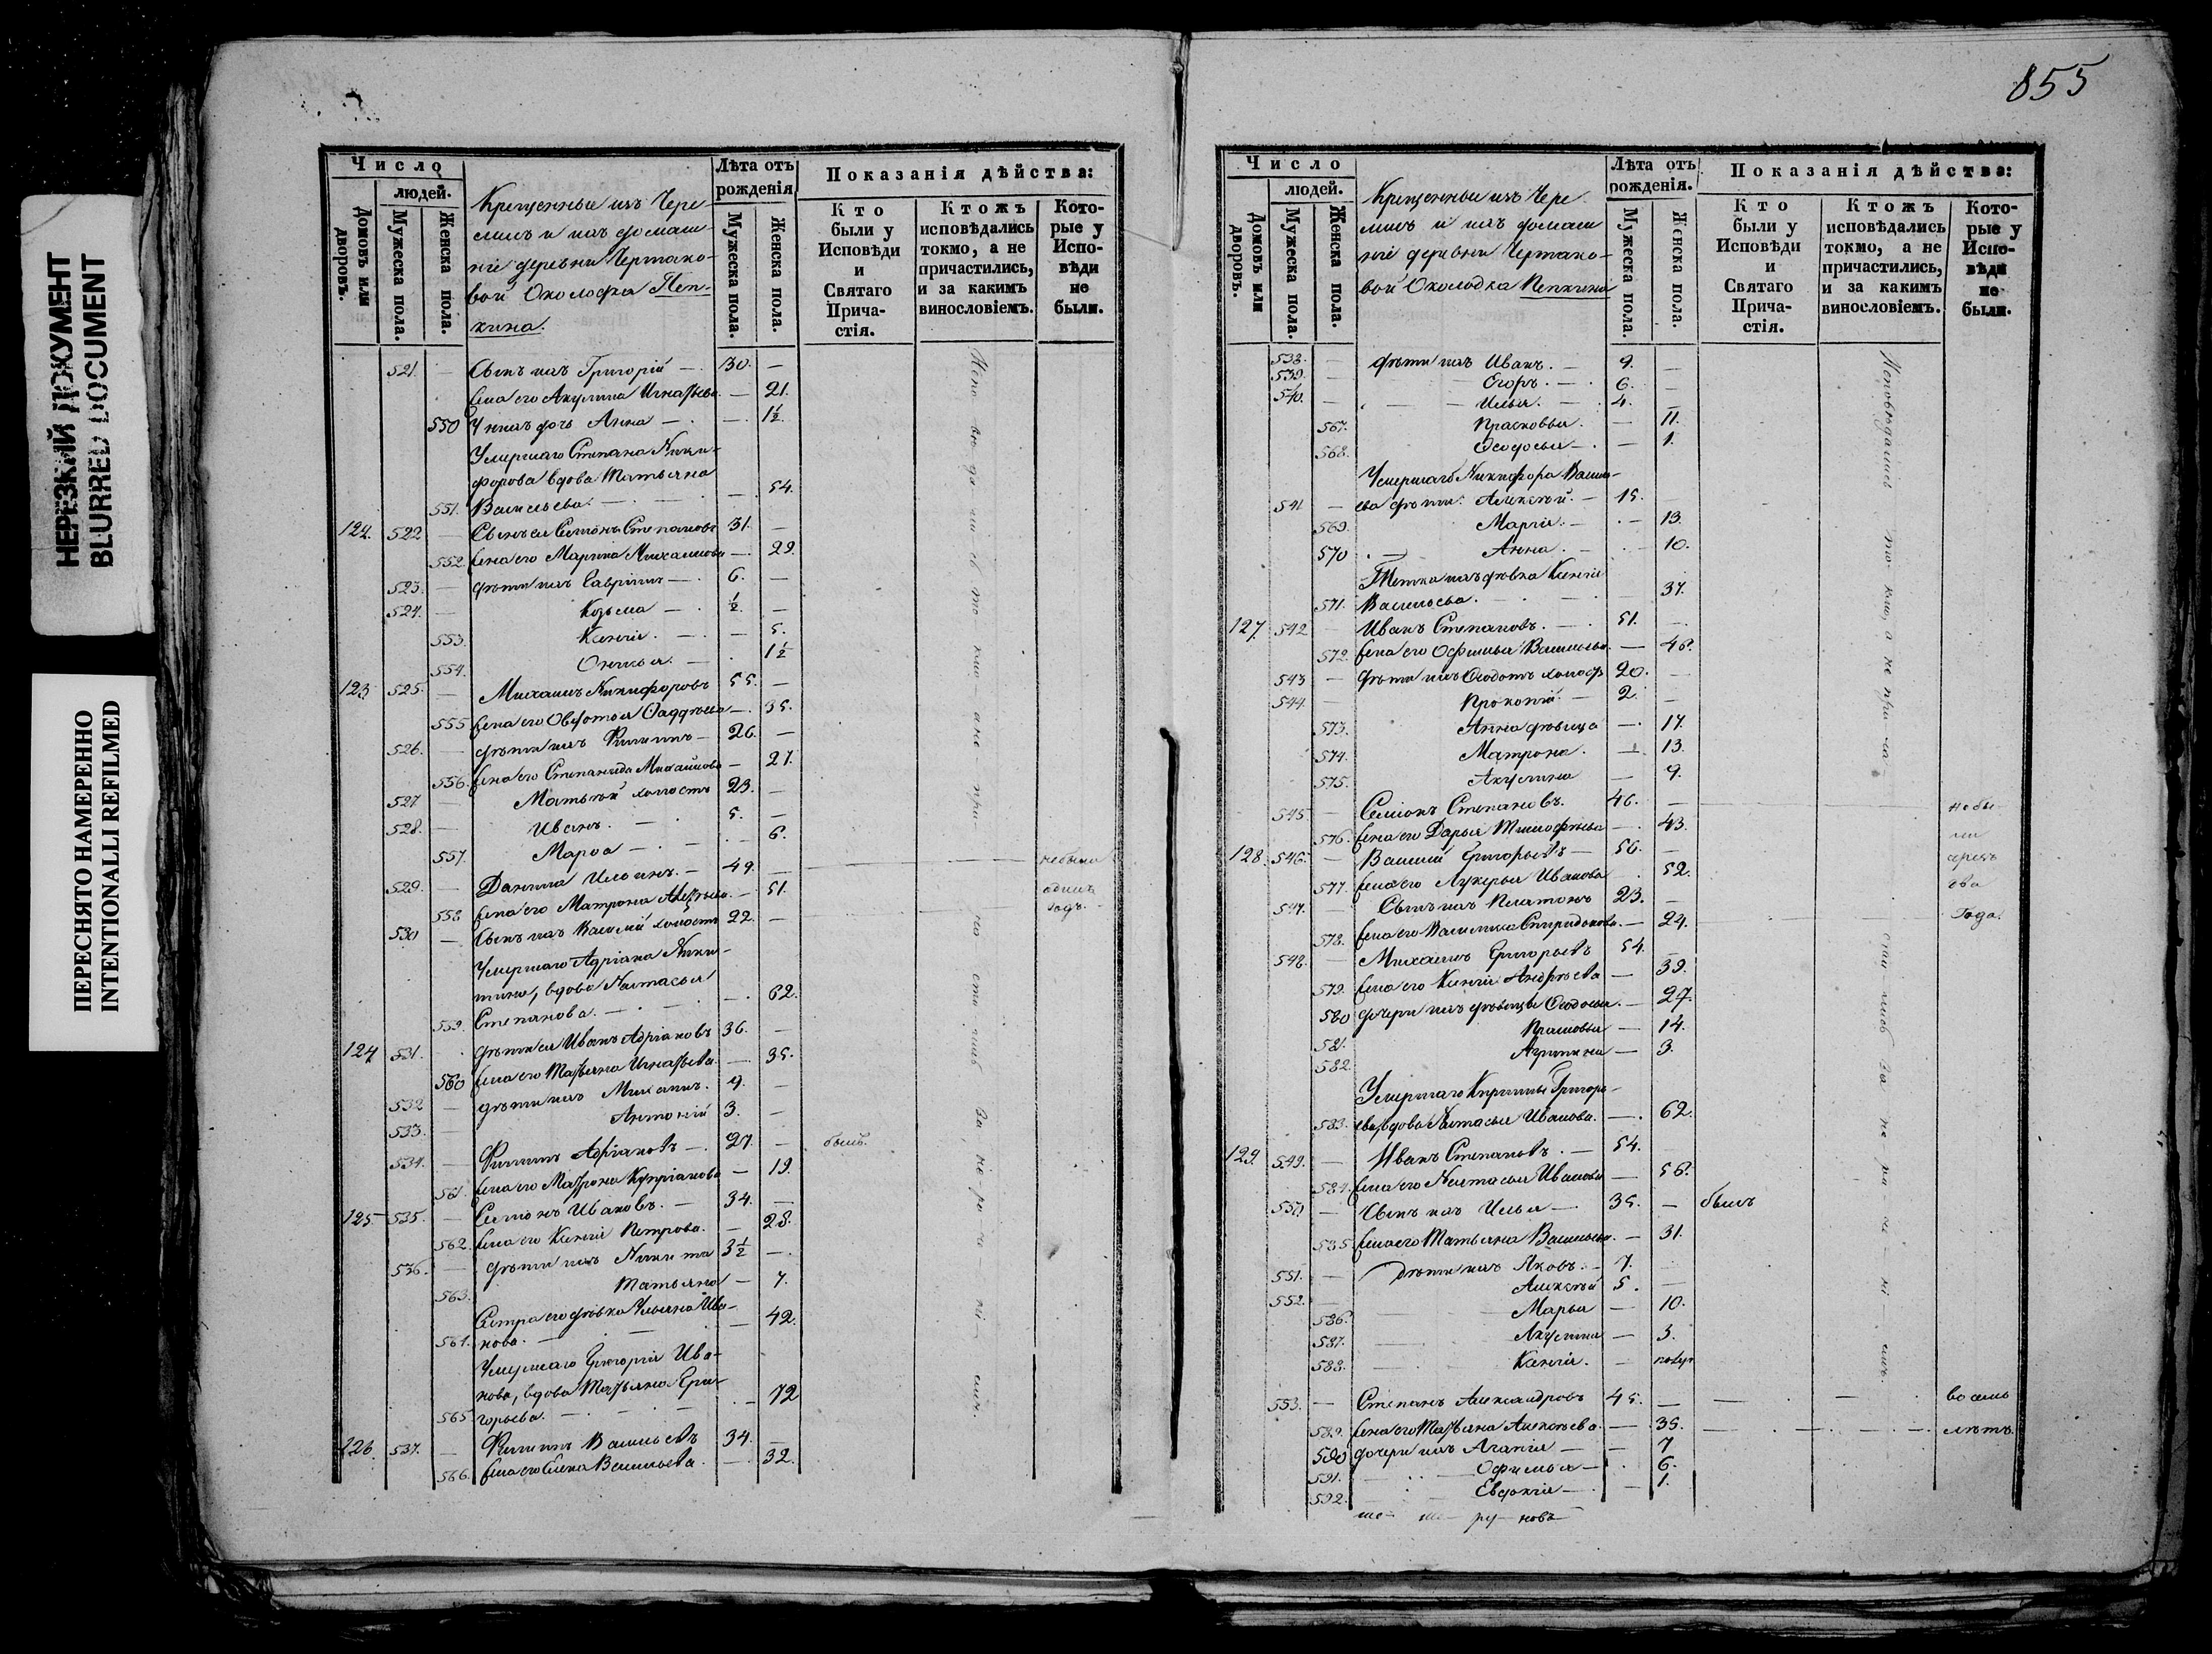 НЕРЕЗКИЙ ДОКУМЕНТ
BLURRED DOCUMENT
ПЕРЕСНЯТО НАМЕРЕННО
INTENTIONALLI REFILMED
Число
людей.
Домовъ или дворовъ.
Мужеска пола.
Женска пола.
Крещенные изъ Чере-
мисъ и ихъ домаш-
ніе деревни Чермако-
вой Околодка Пеп-
кина.
Лѣта отъ рожденія
Мужеска пола.
Женска пола.
Показанія дѣйства:
Кто были у Исповѣди и Святаго Прича-стія.
Ктожъ исповѣдались токмо, а не причастились, и за какимъ винословіемъ.
Кото-рые у Испо-вѣди не были.
521. — Сынъ ихъ Григорій — 30. —
Жена его Акулина Игнатьева — 21.
550 У нихъ дочь Анна — 1½
Умершаго Степана Ники-
форова вдова Татьяна
551. Васильева. — 54.
122. 522 — Сынъ ея Семіонъ Степановъ 31. —
552. Жена его Марина Михаилова — 29.
523. — дѣти ихъ Гавріилъ — 6. —
524. — Козьма — ½ —
553. Ксенія. — 5.
554. — 1½
123. 525. — Михаилъ Никифоровъ 55. —
555 Жена его Ѳаддѣева — 35.
526. — дѣти ихъ Филиппъ — 26. —
556. Жена его Степанида Михайлова — 21.
527 — Матвѣй холостъ 23. —
528. — Иванъ. — 5. —
557. Марѳа — 6.
529. — Данила Ильинъ. — 49. — небыли
558 Жена его Матрона — 51. одинъ
530 — Сынъ ихъ Василій холостъ 22. — годъ.
Умершаго Адріана Ники-
тина, вдова Настасья
559. Степанова. — 62.
124 531. дѣти ея Иванъ Адріановъ 36. —
560 Жена его Татьяна Игнатьева. — 35.
532 — дѣти ихъ Михаилъ. 9. —
533. — Антоній 3. —
534. — Филиппъ Адріановъ — 27. — былъ.
561 Жена его Матрона Купріанова — 19.
125 535. — Семіонъ Ивановъ. — 34. —
562. Жена его Ксенія Петрова. — 28.
536. — дѣти ихъ Никита 3½ —
563. Татьяна — 7.
Сестра его дѣвка Ульяна Ива-
564. нова. — 42.
Умершаго Григорія Ива-
нова, вдова Татьяна Гри-
565 горьева. — 72
126. 537. — Филиппъ Васильевъ 34. —
566. Жена его Елена Васильева. — 32.
Исповѣдались токмо а не причастились За нераченіемъ.
855
Число
людей.
Домовъ или дворовъ.
Мужеска пола.
Женска пола.
Крещенные изъ Чере-
мисъ и ихъ домаш
ніе деревни Чермако-
вой Околодка Пепкина
Лѣта отъ рожденія.
Мужеска пола.
Женска пола.
Показанія дѣйства:
Кто были у Исповѣди и Святаго Прича-стія.
Ктожъ исповѣдались токмо, а не причастились, и за какимъ винословіемъ.
Кото-рые у Испо-вѣди не были.
538. — дѣти ихъ Иванъ. — 9. —
539. — Егоръ. — 6. —
540. — Илья. — 4. —
567. Прасковья. — 11.
568. Ѳеодосья — 1.
Умершаго Никифора Василь-
541 — ева дѣти: Алексѣй. — 15. —
569. Марія. — 13.
570 Анна. — 10.
Тетка ихъ дѣвка Ксенія
571. Васильева. — 37.
127. 542 — Иванъ Степановъ. — 51. —
572. Жена его Офимья Васильева. — 46.
543 — дѣти ихъ Ѳеодотъ холос. 20. —
544. — Прокопій. — 2. —
573. Анна дѣвица — 17.
574. Матрона. — 13.
575. Акулина — 9.
545 — Семіонъ Степановъ. 46. — небы-
576. Жена его Дарья Тимофѣева — 43. ли
128. 546. — Василій Григорьевъ — 56. —
577. Жена его Лукерья Иванова — 52. два
547. — Сынъ ихъ Платонъ 23. — Года.
578. Жена его Василиса Спиридонова. — 24.
548. — Михаилъ Григорьевъ 54. —
579. Жена его Ксенія Андреева — 39.
580 дочери ихъ дѣвица Ѳеодосья. — 27.
581. Прасковья — 14.
582. Агрипина — 3.
Умершаго Кирилы Григорь-
583. ева, вдова Настасья Иванова. — 62.
129. 549. — Иванъ Степановъ. — 54.
584. Жена его Настасья Иванова — 56.
550 — Сынъ ихъ Илья — 35. — былъ
585. Жена его Татьяна Васильева. — 31.
551. — дѣти ихъ Яковъ. — 7. —
552. — Алексѣй 5. —
586. Марья — 10.
587. Акулина — 3.
588. Ксенія. — полуг
553. — Степанъ Александровъ 45. — восемь
589. Жена его Татьяна Алексѣева. — 35. — лѣтъ.
590 дочери ихъ Агапія — 7
591. Офимья — 6.
592. Евдокія — 1.
Исповѣдались токмо, а не причастились За нераченіемъ.